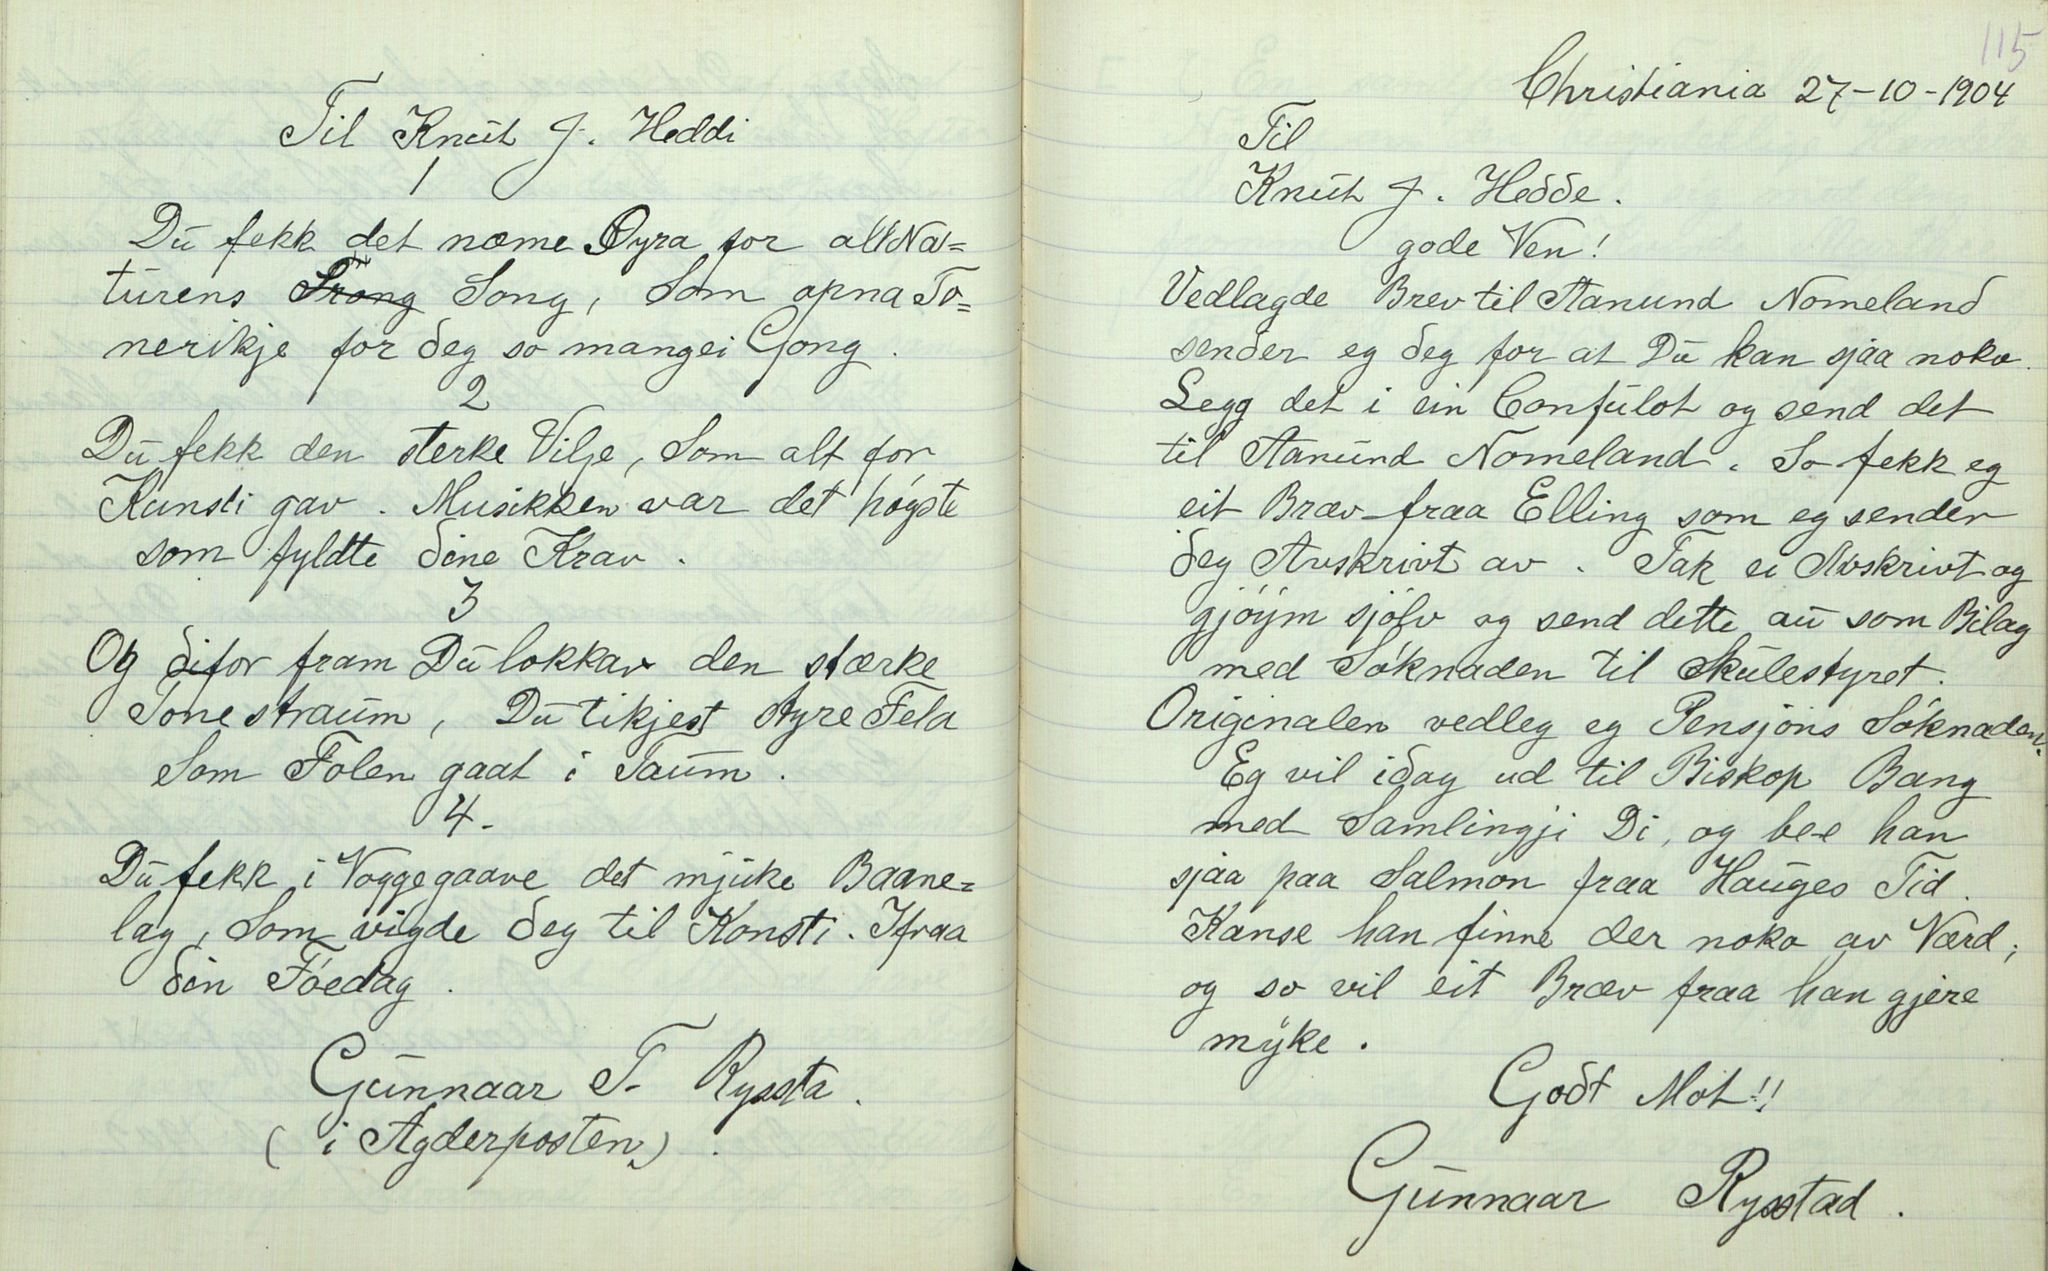 Til Knut J. Heddi
1
Du fekk det næme Øyra for all Na=
turens Trong Song, Som opna To=
nerikje for deg so mangei Gong.
2
Du fekk den sterke Vilje, Som alt for
Kunsti gav. Musikken var det høgste
som fyldte dine Krav.
3
Og difor fram Du lokkar den stærke
Tonestraum, Du tikjest styre Fela
Som Folen gaat i Taum.
4.
Du fekk i Voggegaave det mjuke Baane=
lag, Som vigde deg til Konsti. Ifraa
din Føedag.
Gunnaar T. Ryssta.
(i Agderposten).
115
Christiania 27-10-1904
Til
Knut J. Hedde.
gode Ven!
Vedlagde Brev til Aanund Nomeland
sender eg deg for at Du kan sjaa noko.
Legg det i ein Confulot og send det
til Aanund Nomeland. So fekk eg
eit Bræv fraa Elling som eg sender
deg Avskrivt av. Tak ei Avskrivt og
gjøym sjølv og send dette au som Bilag
med Søknaden til Skulestyret.
Originalen vedleg eg Pensjons Søknaden.
Eg vil idag ud til Biskop Bang
med Samlingji Di, og bee han
sjaa paa Salmon fraa Hauges Tid.
Kanse han finne der noko av Værd;
og so vil eit Bræv fraa han gjere
myke.
Godt Mot!!
Gunnaar Rysstad.